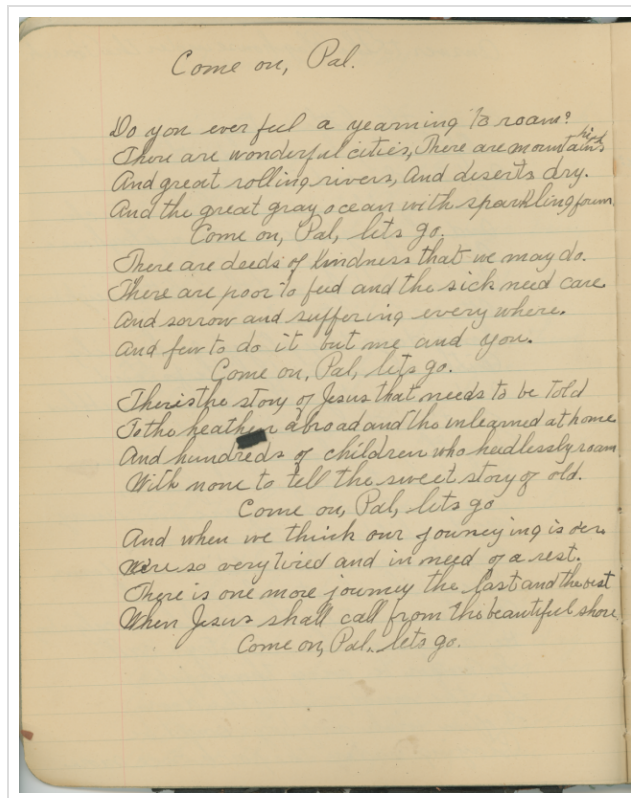 Come on, Pal.
Do you ever feel a yearning to roam?
There are wonderful cities, There are mountains high
And great rolling rivers, And deserts dry.
And the great gray ocean with sparkling foam.
Come on, Pal, lets go.
There are deeds of kindness that we may do.
There are poor to feed and the sick need care
And sorrow and suffering every where.
And few to do it but me and you.
Come on, Pal, lets go.
Theres the story of Jesus that needs to be told
To the heathen abroad and the unlearned at home
And hundreds of children who heedlessly roam
With none to tell the sweet story of old.
Come on, Pal, lets go
And when we think our journeying is oer
Were so very tired and in need of a rest.
There is one more journey the last and the best
When Jesus shall call from the beautiful shore
Come on, Pal. lets go.